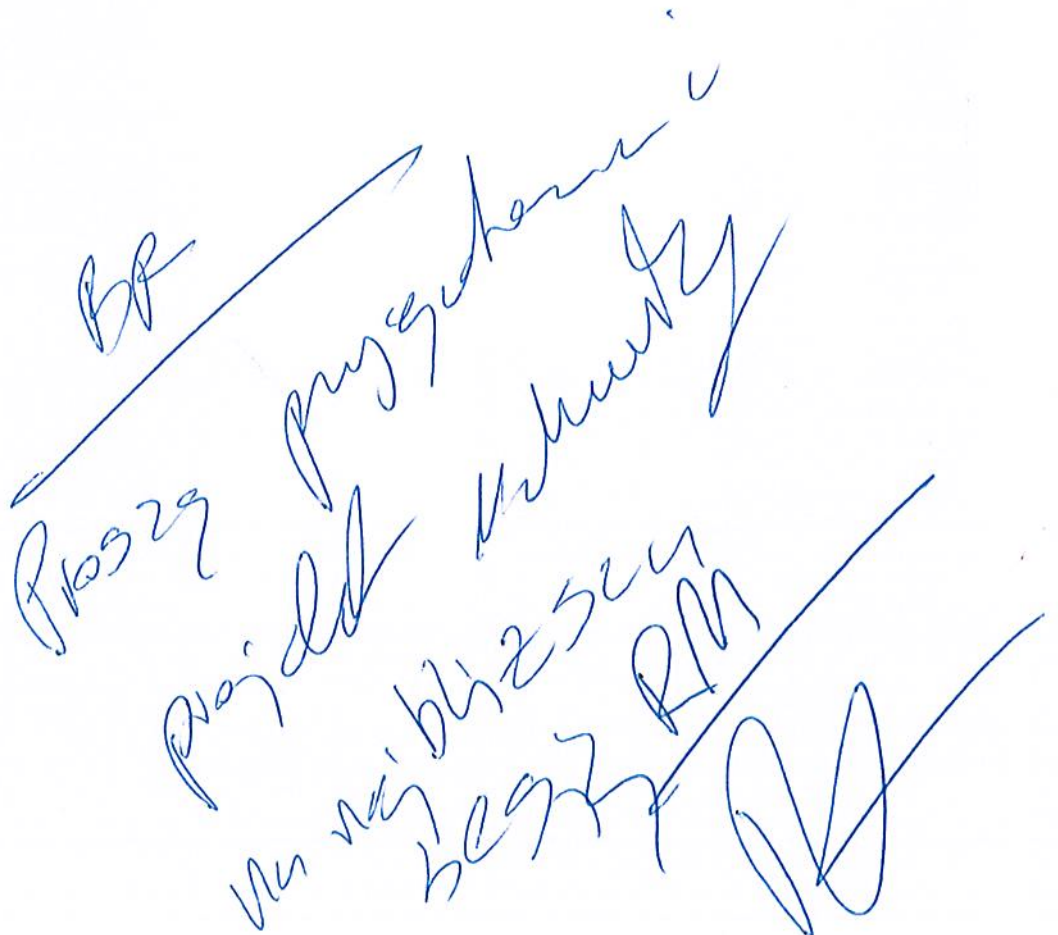 BR
Proszę przygotowanie
projekt uchwały
na najbliższą
sesję RM